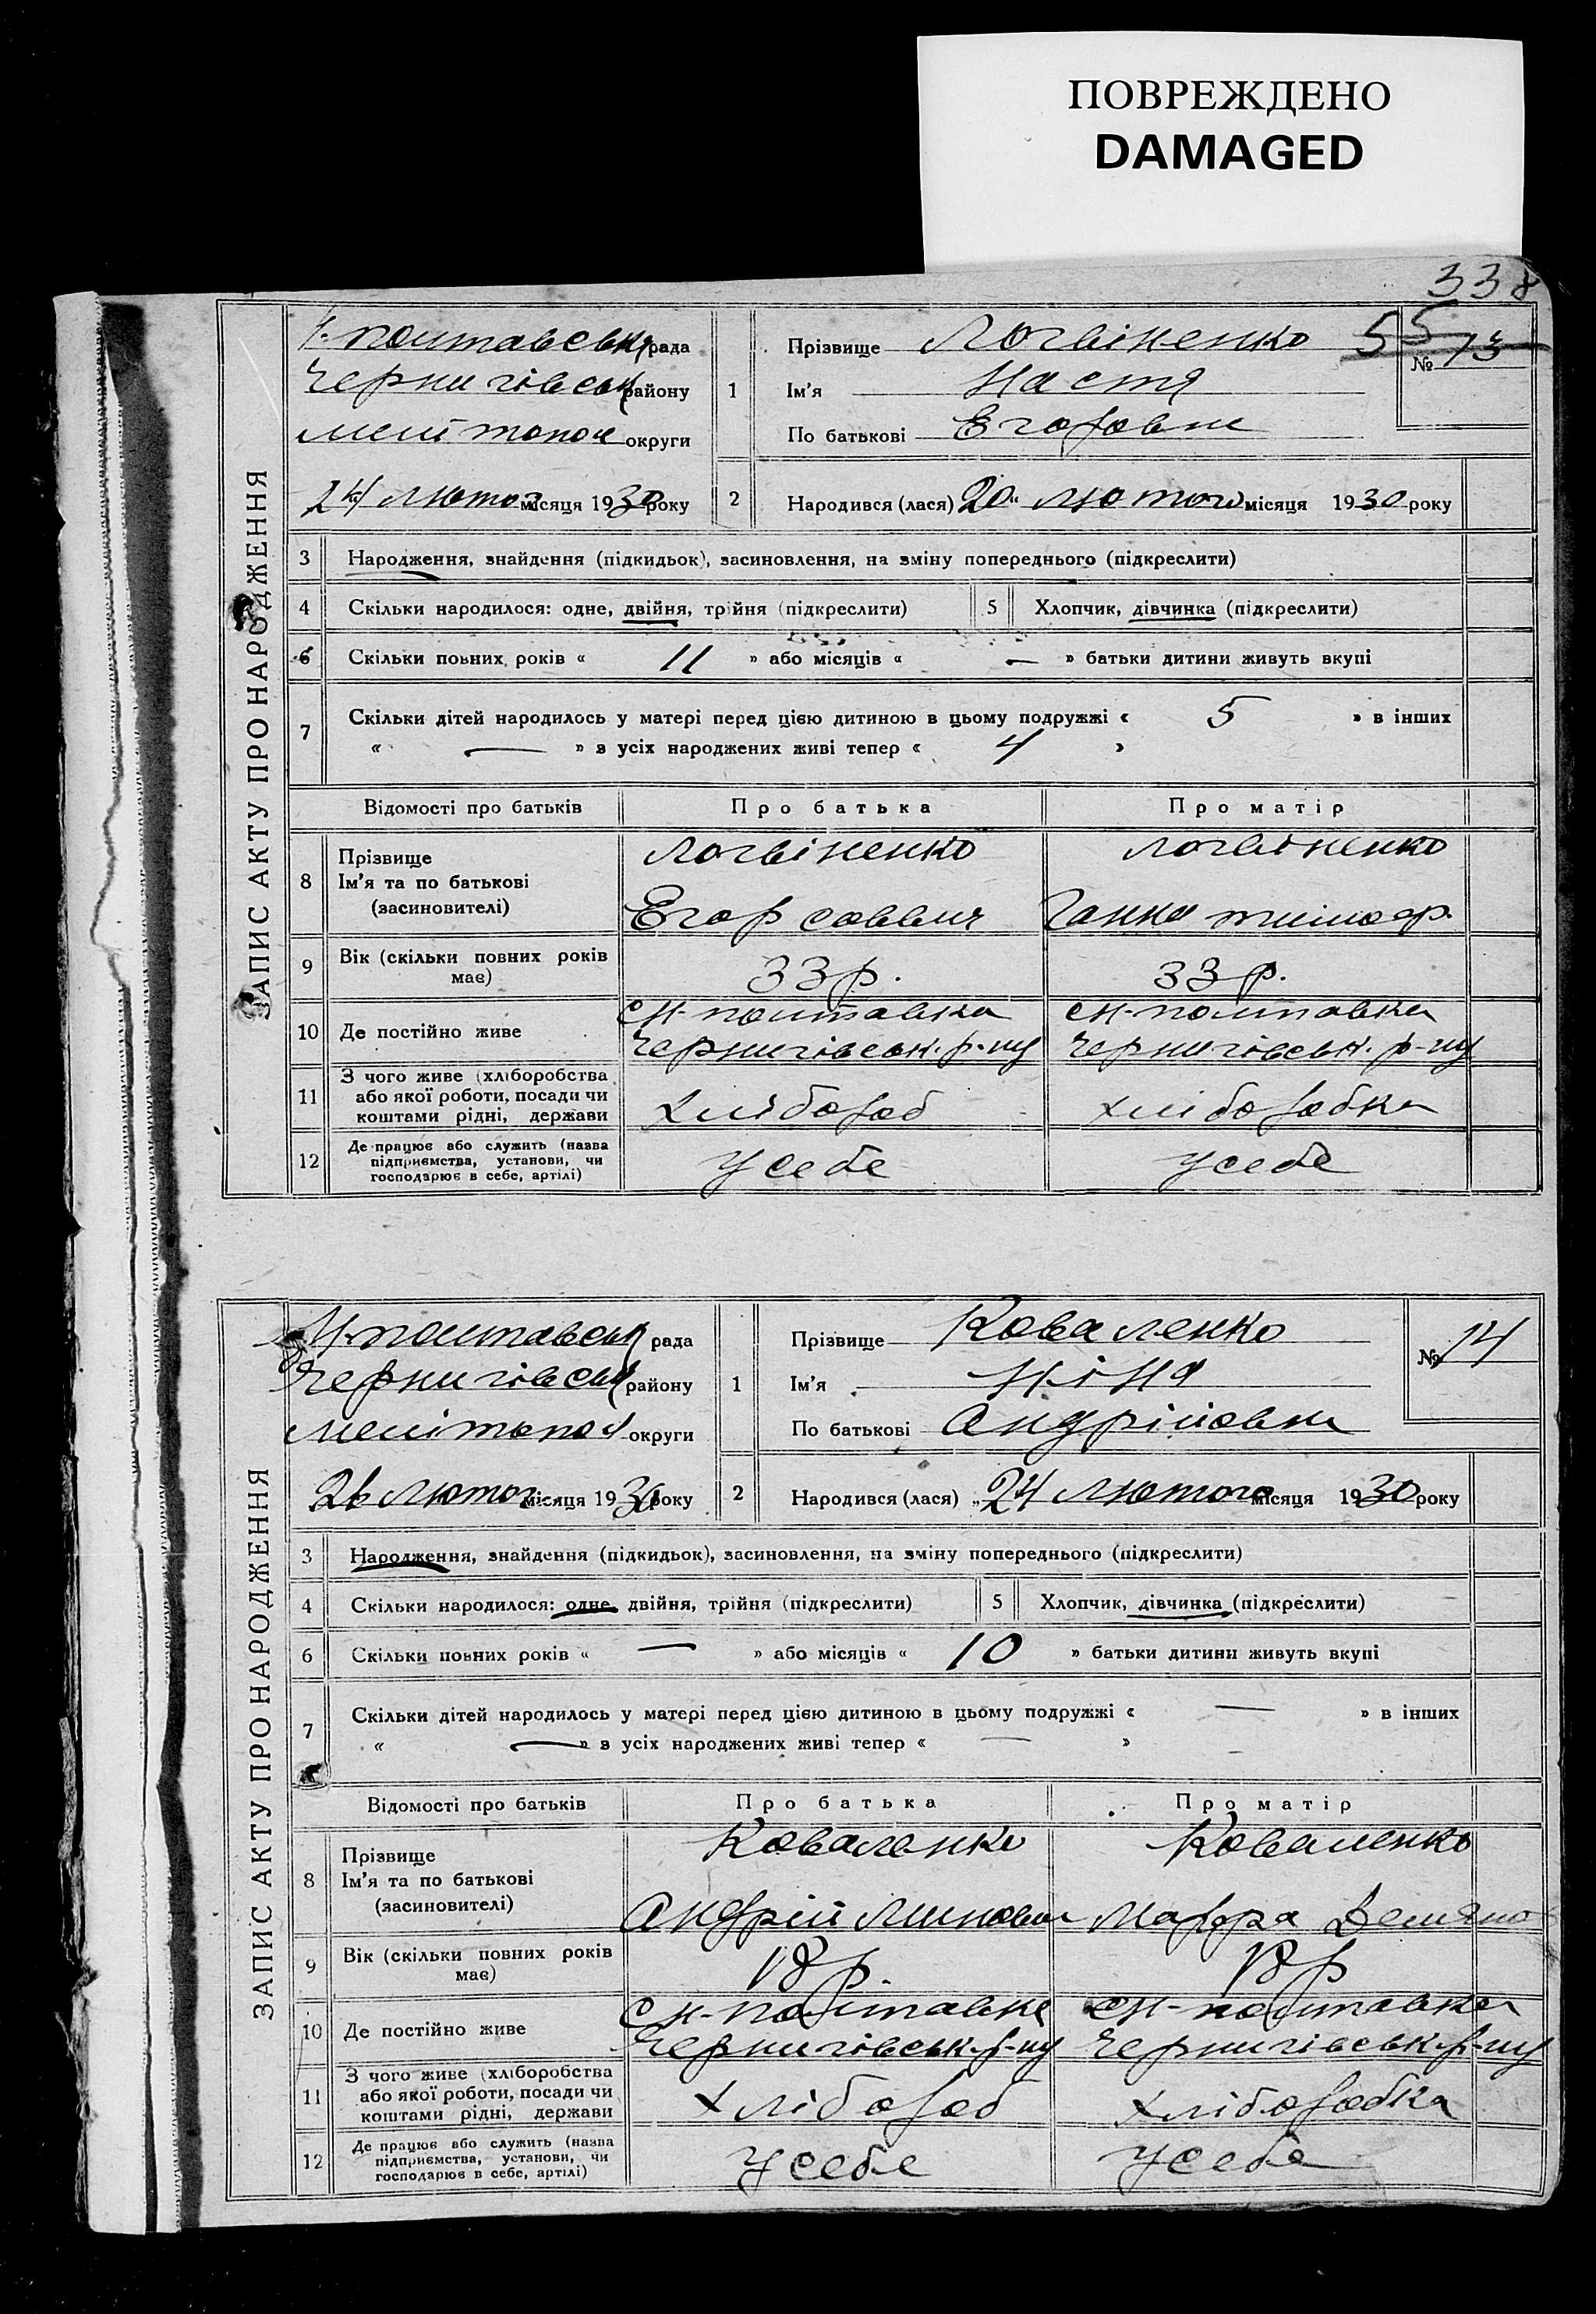 ПОВРЕЖДЕНО
DAMAGED
338
ЗАПИС АКТУ ПРО НАРОДЖЕННЯ
Н. полтавськ рада
Чернигівськ району
Мелітопол округи
24 Лютого місяця 1930 року
1
Прізвище Логвіненко
Ім'я Настя
По батькові Егоровна
55
№ 13
2
Народився (лася) 20 " Лютого місяця 1930 року
3 Народження, знайдення (підкидьок), засиновлення, на зміну попереднього (підкреслити)
4 Скільки народилося: одне, двійня, трійня (підкреслити) 5 Хлопчик, дівчинка (підкреслити)
6 Скільки повних років « 11 » або місяців « — » батьки дитини живуть вкупі
7 Скільки дітей народилось у матері перед цією дитиною в цьому подружжі « 5 » в інших
« — » з усіх народжених живі тепер « 4 »
Відомості про батьків Про батька Про матір
8 Прізвище
Ім'я та по батькові
(засиновителі)
Логвіненко
Егор Саввич
Логвіненко
Ганна Тимоф.
9 Вік (скільки повних років має) 33 р. 33 р.
10 Де постійно живе
с Н-полтавка
Чернигівськ. р-ну
с Н-полтавка
Чернигівськ. р-ну
11 З чого живе (хліборобства
або якої роботи, посади чи
коштами рідні, держави
Хлібороб
хліборобка
12 Де працює або служить (назва
підприємства, установи, чи
господарює в себе, артілі)
У себе
У себе
ЗАПИС АКТУ ПРО НАРОДЖЕННЯ
Н. полтавськ рада
Чернигівськ району
Мелітопол округи
26 Лютого місяця 1930 року
1
Прізвище Коваленко
Ім'я Ніна
По батькові Андріївна
№ 14
2
Народився (лася) „ 24 Лютого місяця 1930 року
3 Народження, знайдення (підкидьок), засиновлення, на зміну попереднього (підкреслити)
4 Скільки народилося: одне, двійня, трійня (підкреслити) 5 Хлопчик, дівчинка (підкреслити)
6 Скільки повних років « — » або місяців « 10 » батьки дитини живуть вкупі
7 Скільки дітей народилось у матері перед цією дитиною в цьому подружжі « — » в інших
« — » з усіх народжених живі тепер « — »
Відомості про батьків Про батька Про матір
8 Прізвище
Ім'я та по батькові
(засиновителі)
Коваленко
Андрій
Коваленко
Марфа Демяно
9 Вік (скільки повних років має) 18 р. 18 р
10 Де постійно живе
с Н-полтавка
Чернигівськ. р-ну
с Н-полтавка
Чернигівськ. р-ну
11 З чого живе (хліборобства
або якої роботи, посади чи
коштами рідні, держави
Хлібороб
хліборобка
12 Де працює або служить (назва
підприємства, установи, чи
господарює в себе, артілі)
У себе
У себе